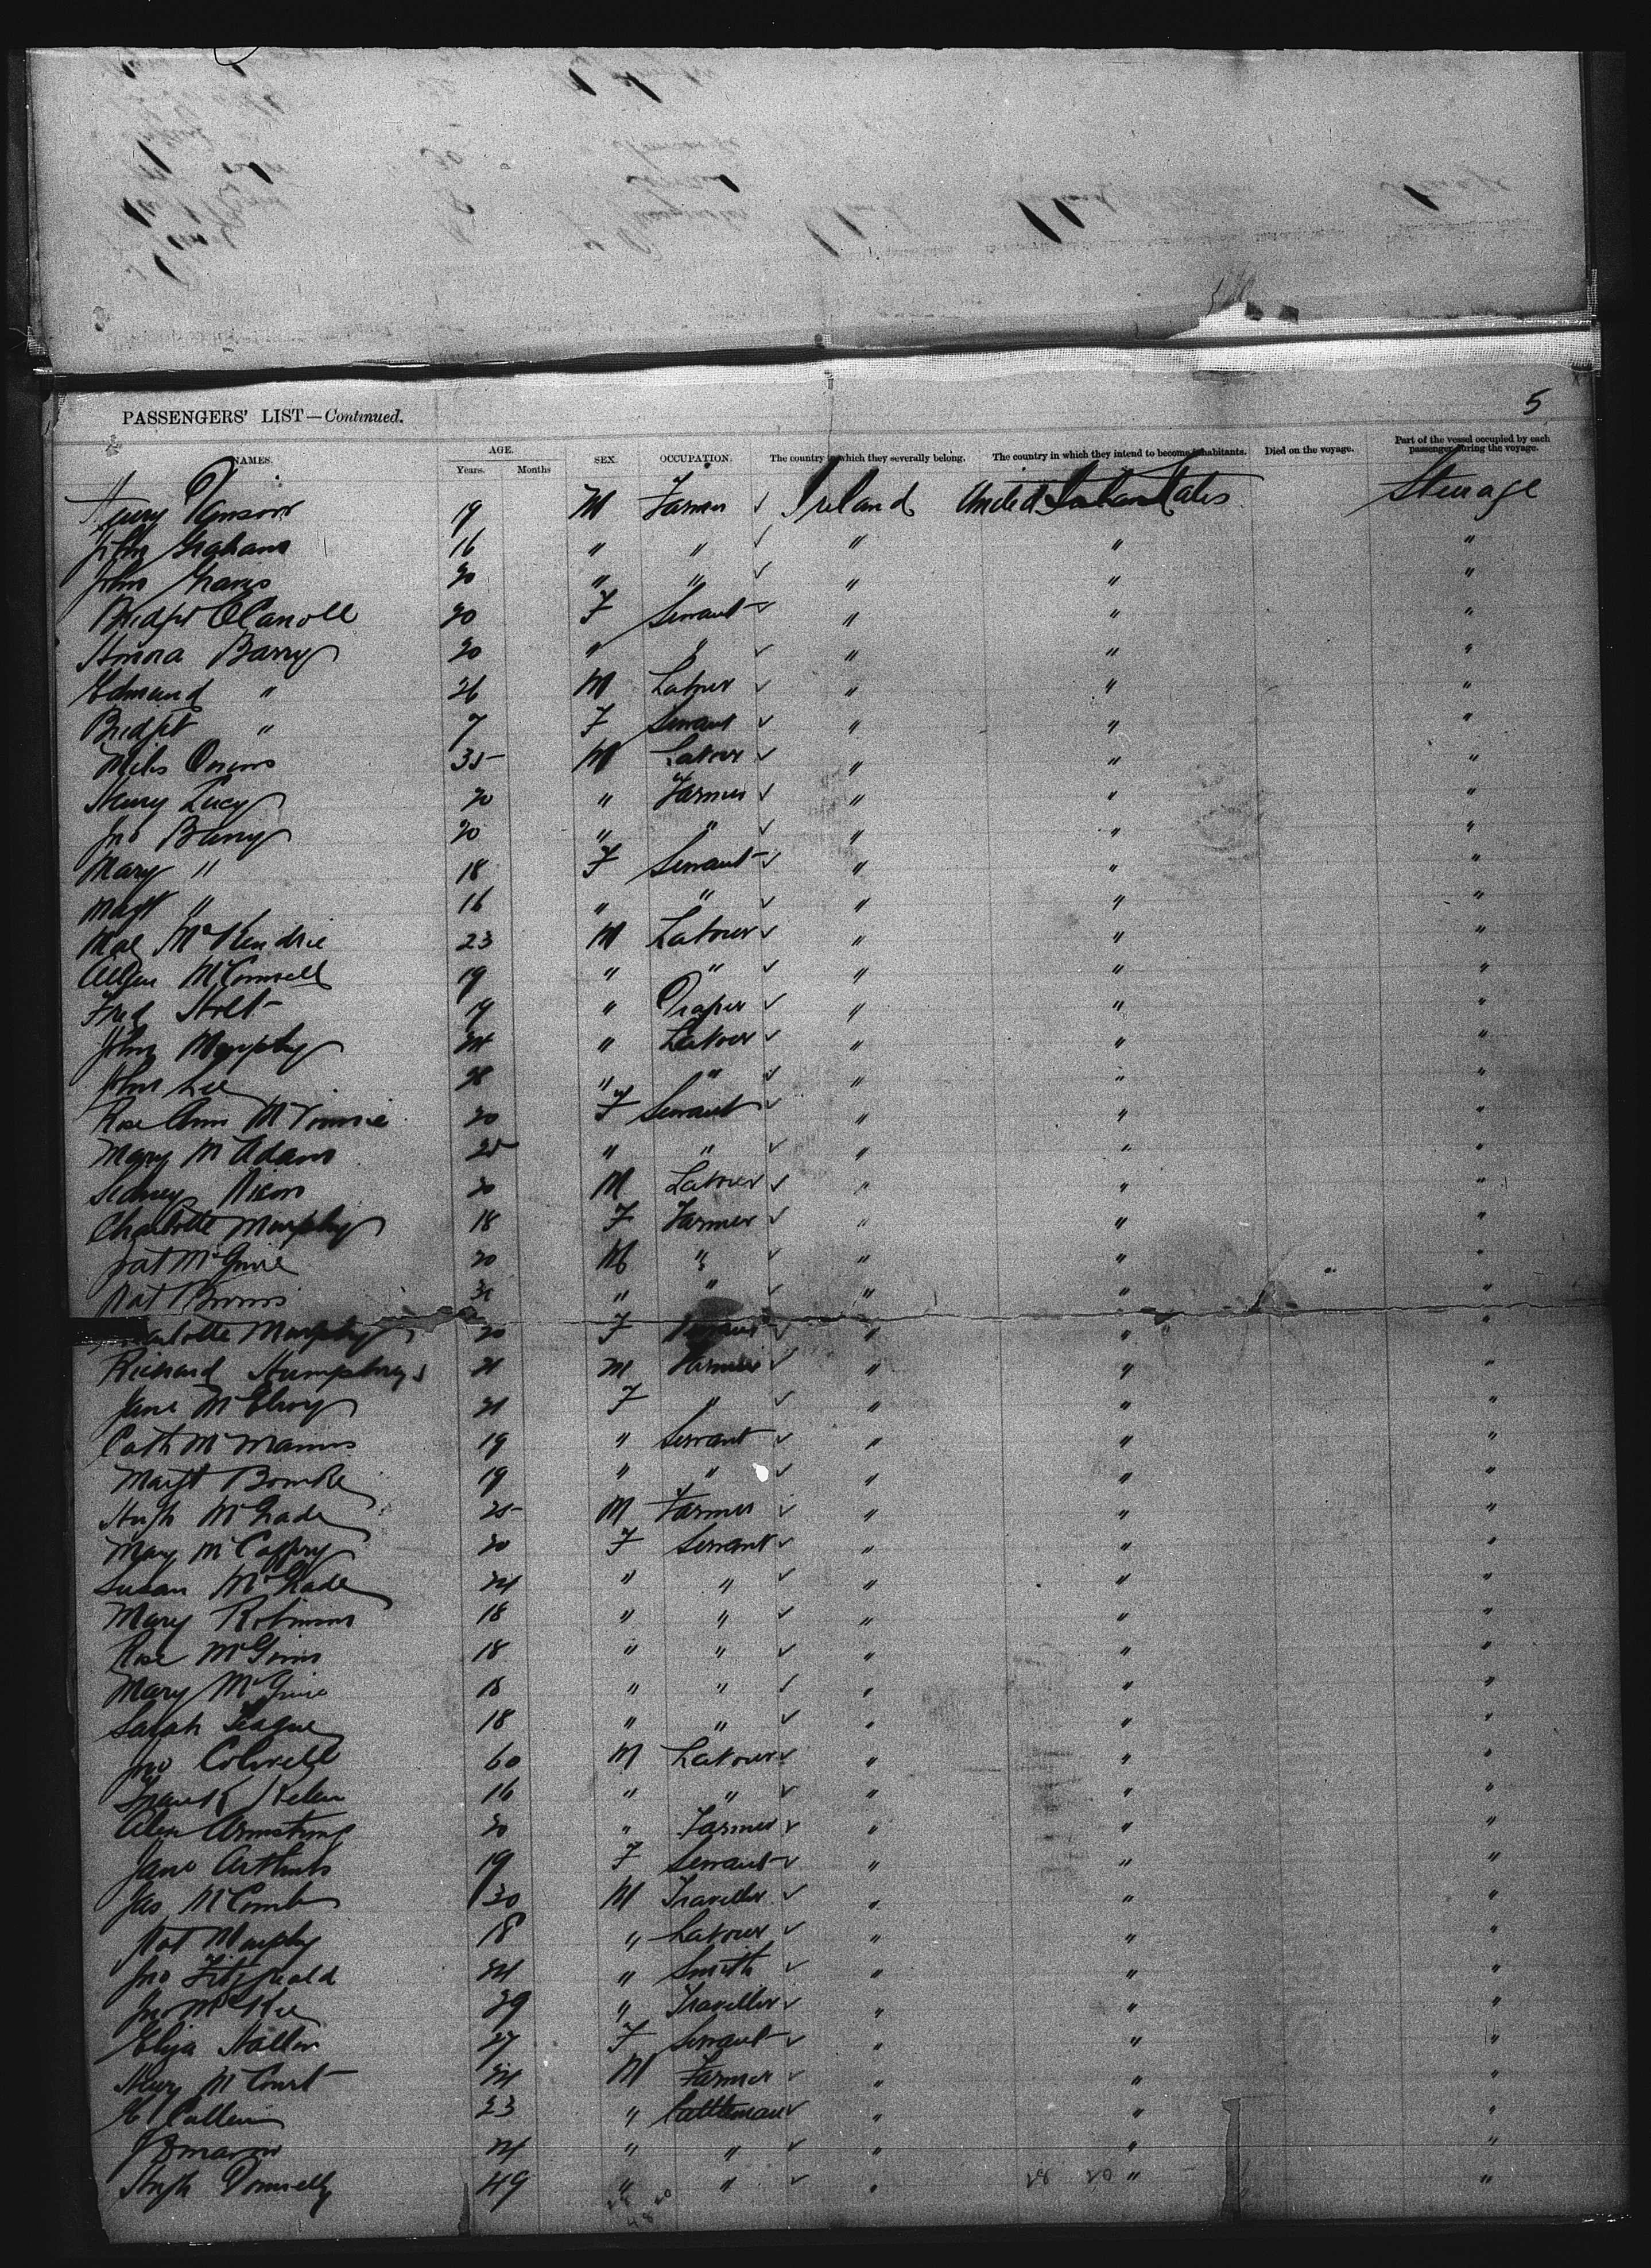 5
PASSENGERS' LIST—Continued.
NAMES. AGE. Years. Months SEX. OCCUPATION. The country in which they severally belong. The country in which they intend to become inhabitants. Died on the voyage. Part of the vessel occupied by each passenger during the voyage.
19 M Farmer ✓ Ireland United States Steerage
John Graham 16 " " ✓ " " "
John 20 " " ✓ " " "
Bridgt O'Carroll 20 F Servant ✓ " " "
Honora Barry 20 " " ✓ " " "
Edmund " 26 M Labour ✓ " " "
Bridgt " 7 F Servant ✓ " " "
Miles Owens 35 M Labour ✓ " " "
Henry Lucy 20 " Farmer ✓ " " "
Jno Barry 20 " " ✓ " " "
Mary " 18 F Servant ✓ " " "
Magt " 16 " " ✓ " " "
McKendrie 23 M Labour ✓ " " "
McConnell 19 " " ✓ " " "
Fred Holt 19 " Draper ✓ " " "
John Murphy 24 " Labour ✓ " " "
John Lee 28 " " ✓ " " "
Rose Ann 20 F Servant ✓ " " "
Mary McAdam 25 " " ✓ " " "
Sidney Nixon 20 M Labour ✓ " " "
Charlotte Murphy 18 F Farmer ✓ " " "
Pat McGuire 20 M " ✓ " " "
Pat " " ✓ " " "
Murphy 20 F ✓ " " "
Richard Humphreys 21 M Farmer ✓ " " "
Jane McElroy 21 F " ✓ " " "
Cath McManus 19 " Servant ✓ " " "
Margt Bourke 19 " " ✓ " " "
Hugh McGrade 25 M Farmer ✓ " " "
Mary McCaffry 20 F Servant ✓ " " "
Susan McGrade 24 " " ✓ " " "
Mary Robinson 18 " " ✓ " " "
Rose McGinn 18 " " ✓ " " "
Mary McGuire 18 " " ✓ " " "
Sarah Teague 18 " " ✓ " " "
Jno Colwell 60 M Labour ✓ " " "
Frank 16 " " ✓ " " "
Alex Armstrong 20 " Farmer ✓ " " "
Jane Arthurs 19 F Servant ✓ " " "
Jas McComb 30 M Traveller ✓ " " "
Pat Murphy 18 " Labour ✓ " " "
Jno Fitzgerald 24 " Smith ✓ " " "
Jno McKee 39 " Traveller ✓ " " "
Eliza 27 F Servant ✓ " " "
Henry McCourt 24 M Farmer ✓ " " "
Cullen 23 " Cattleman ✓ " " "
24 " " ✓ " " "
Hugh Donnelly 49 " " ✓ " 28 20 " "